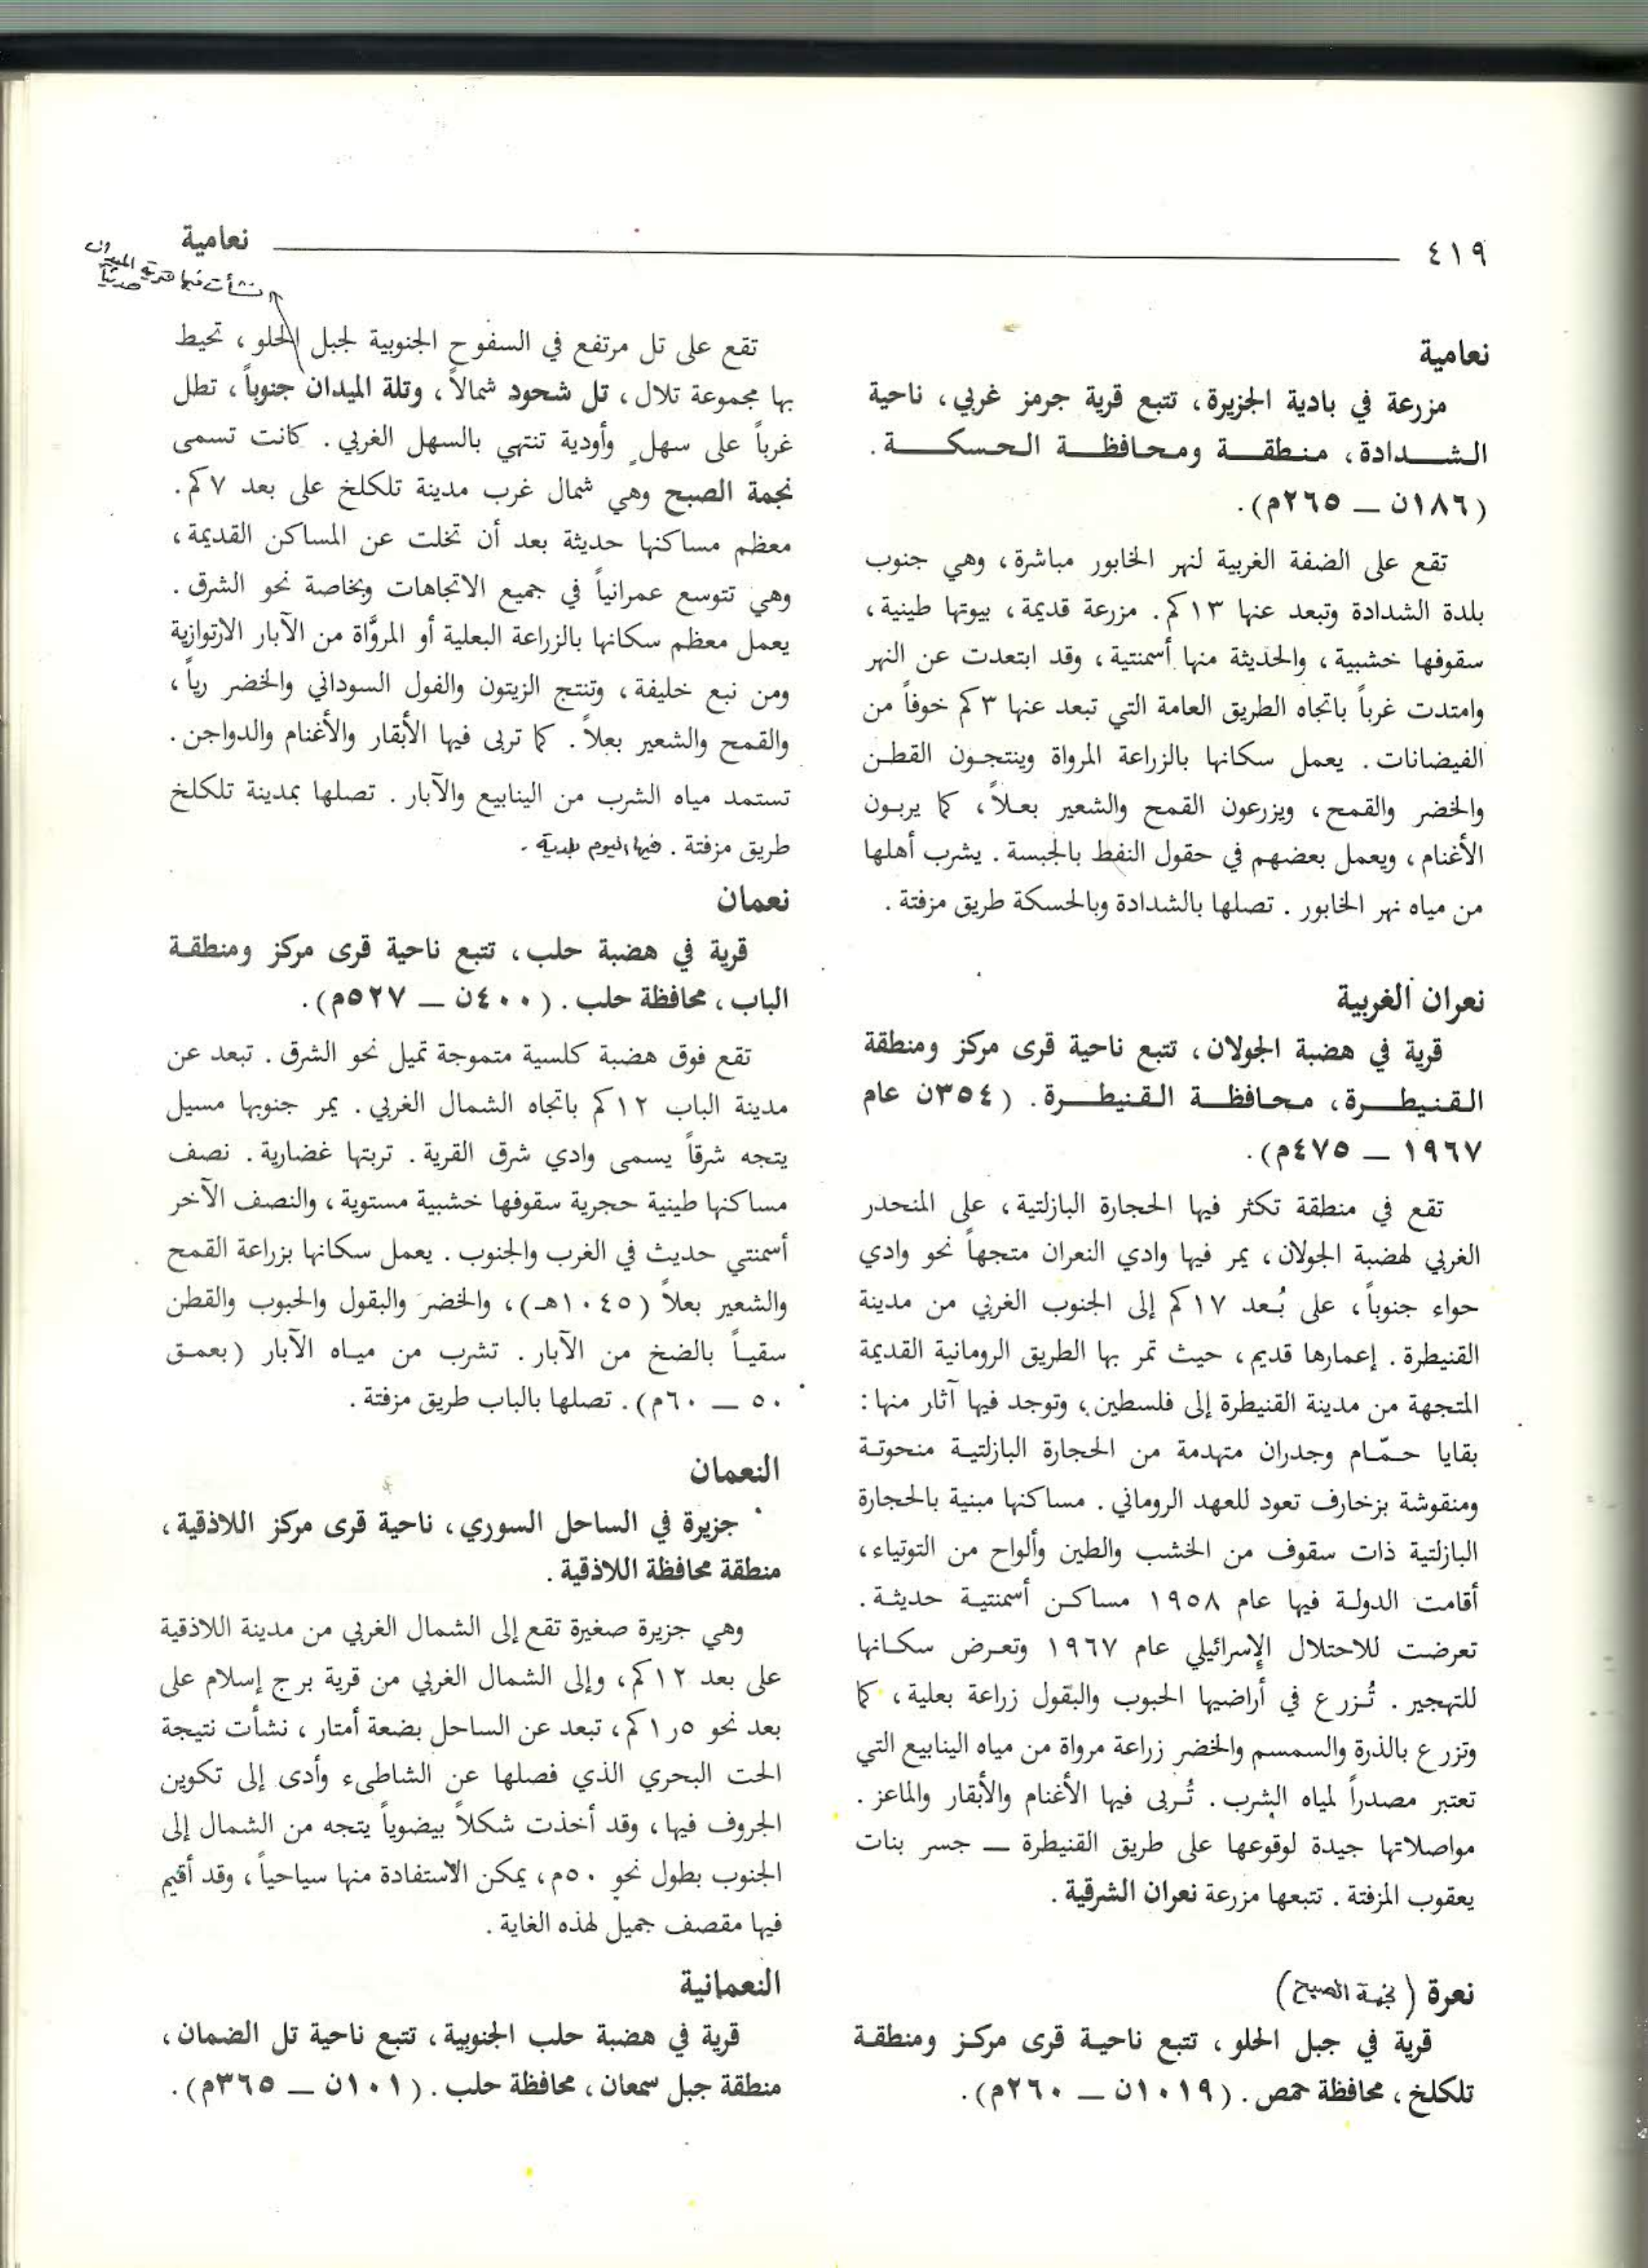 ٤١٩
نعامية
نشأت فيها قرية الميدان
حديثاً
نعامية
مزرعة في بادية الجزيرة، تتبع قرية جرمز غربي، ناحية
الشدادة، منطقة ومحافظة الحسكة.
(١٨٦ن — ٢٦٥م).
تقع على الضفة الغربية لنهر الخابور مباشرة، وهي جنوب
بلدة الشدادة وتبعد عنها ١٣كم. مزرعة قديمة، بيوتها طينية،
سقوفها خشبية، والحديثة منها أسمنتية، وقد ابتعدت عن النهر
وامتدت غرباً باتجاه الطريق العامة التي تبعد عنها ٣كم خوفاً من
الفيضانات. يعمل سكانها بالزراعة المرواة وينتجون القطن
والخضر والقمح، ويزرعون القمح والشعير بعلاً، كما يربون
الأغنام، ويعمل بعضهم في حقول النفط بالجبسة. يشرب أهلها
من مياه نهر الخابور. تصلها بالشدادة وبالحسكة طريق مزفتة.
نعران الغربية
قرية في هضبة الجولان، تتبع ناحية قرى مركز ومنطقة
القنيطرة، محافظة القنيطرة. (٣٥٤ن عام
١٩٦٧ — ٤٧٥م).
تقع في منطقة تكثر فيها الحجارة البازلتية، على المنحدر
الغربي لهضبة الجولان، يمر فيها وادي النعران متجهاً نحو وادي
حواء جنوباً، على بُعد ١٧كم إلى الجنوب الغربي من مدينة
القنيطرة. إعمارها قديم، حيث تمر بها الطريق الرومانية القديمة
المتجهة من مدينة القنيطرة إلى فلسطين، وتوجد فيها آثار منها:
بقايا حمّام وجدران متهدمة من الحجارة البازلتية منحوتة
ومنقوشة بزخارف تعود للعهد الروماني. مساكنها مبنية بالحجارة
البازلتية ذات سقوف من الخشب والطين وألواح من التوتياء،
أقامت الدولة فيها عام ١٩٥٨ مساكن أسمنتية حديثة.
تعرضت للاحتلال الإسرائيلي عام ١٩٦٧ وتعرض سكانها
للتهجير. تُزرع في أراضيها الحبوب والبقول زراعة بعلية، كما
وتزرع بالذرة والسمسم والخضر زراعة مرواة من مياه الينابيع التي
تعتبر مصدراً لمياه الشرب. تُربى فيها الأغنام والأبقار والماعز.
مواصلاتها جيدة لوقوعها على طريق القنيطرة — جسر بنات
يعقوب المزفتة. تتبعها مزرعة نعران الشرقية.
نعرة (نجمة الصبح)
قرية في جبل الحلو، تتبع ناحية قرى مركز ومنطقة
تلكلخ، محافظة حمص. (١٠١٩ن — ٢٦٠م).
تقع على تل مرتفع في السفوح الجنوبية لجبل الحلو، تحيط
بها مجموعة تلال، تل شحود شمالاً، وتلة الميدان جنوباً، تطل
غرباً على سهل وأودية تنتهي بالسهل الغربي. كانت تسمى
نجمة الصبح وهي شمال غرب مدينة تلكلخ على بعد ٧كم.
معظم مساكنها حديثة بعد أن تخلت عن المساكن القديمة،
وهي تتوسع عمرانياً في جميع الاتجاهات وبخاصة نحو الشرق.
يعمل معظم سكانها بالزراعة البعلية أو المروَّاة من الآبار الارتوازية
ومن نبع خليفة، وتنتج الزيتون والفول السوداني والخضر رياً،
والقمح والشعير بعلاً. كما تربى فيها الأبقار والأغنام والدواجن.
تستمد مياه الشرب من الينابيع والآبار. تصلها بمدينة تلكلخ
طريق مزفتة. فيها اليوم بلدية.
نعمان
قرية في هضبة حلب، تتبع ناحية قرى مركز ومنطقة
الباب، محافظة حلب. (٤٠٠ن — ٥٢٧م).
تقع فوق هضبة كلسية متموجة تميل نحو الشرق. تبعد عن
مدينة الباب ١٢كم باتجاه الشمال الغربي. يمر جنوبها مسيل
يتجه شرقاً يسمى وادي شرق القرية. تربتها غضارية. نصف
مساكنها طينية حجرية سقوفها خشبية مستوية، والنصف الآخر
أسمنتي حديث في الغرب والجنوب. يعمل سكانها بزراعة القمح
والشعير بعلاً (١٠٤٥هـ)، والخضر والبقول والحبوب والقطن
سقياً بالضخ من الآبار. تشرب من مياه الآبار (بعمق
٥٠ — ٦٠م). تصلها بالباب طريق مزفتة.
النعمان
جزيرة في الساحل السوري، ناحية قرى مركز اللاذقية،
منطقة محافظة اللاذقية.
وهي جزيرة صغيرة تقع إلى الشمال الغربي من مدينة اللاذقية
على بعد ١٢كم، وإلى الشمال الغربي من قرية برج إسلام على
بعد نحو ١٫٥كم، تبعد عن الساحل بضعة أمتار، نشأت نتيجة
الحت البحري الذي فصلها عن الشاطىء وأدى إلى تكوين
الجروف فيها، وقد أخذت شكلاً بيضوياً يتجه من الشمال إلى
الجنوب بطول نحو ٥٠م، يمكن الاستفادة منها سياحياً، وقد أقيم
فيها مقصف جميل لهذه الغاية.
النعمانية
قرية في هضبة حلب الجنوبية، تتبع ناحية تل الضمان،
منطقة جبل سمعان، محافظة حلب. (١٠١ن — ٣٦٥م).